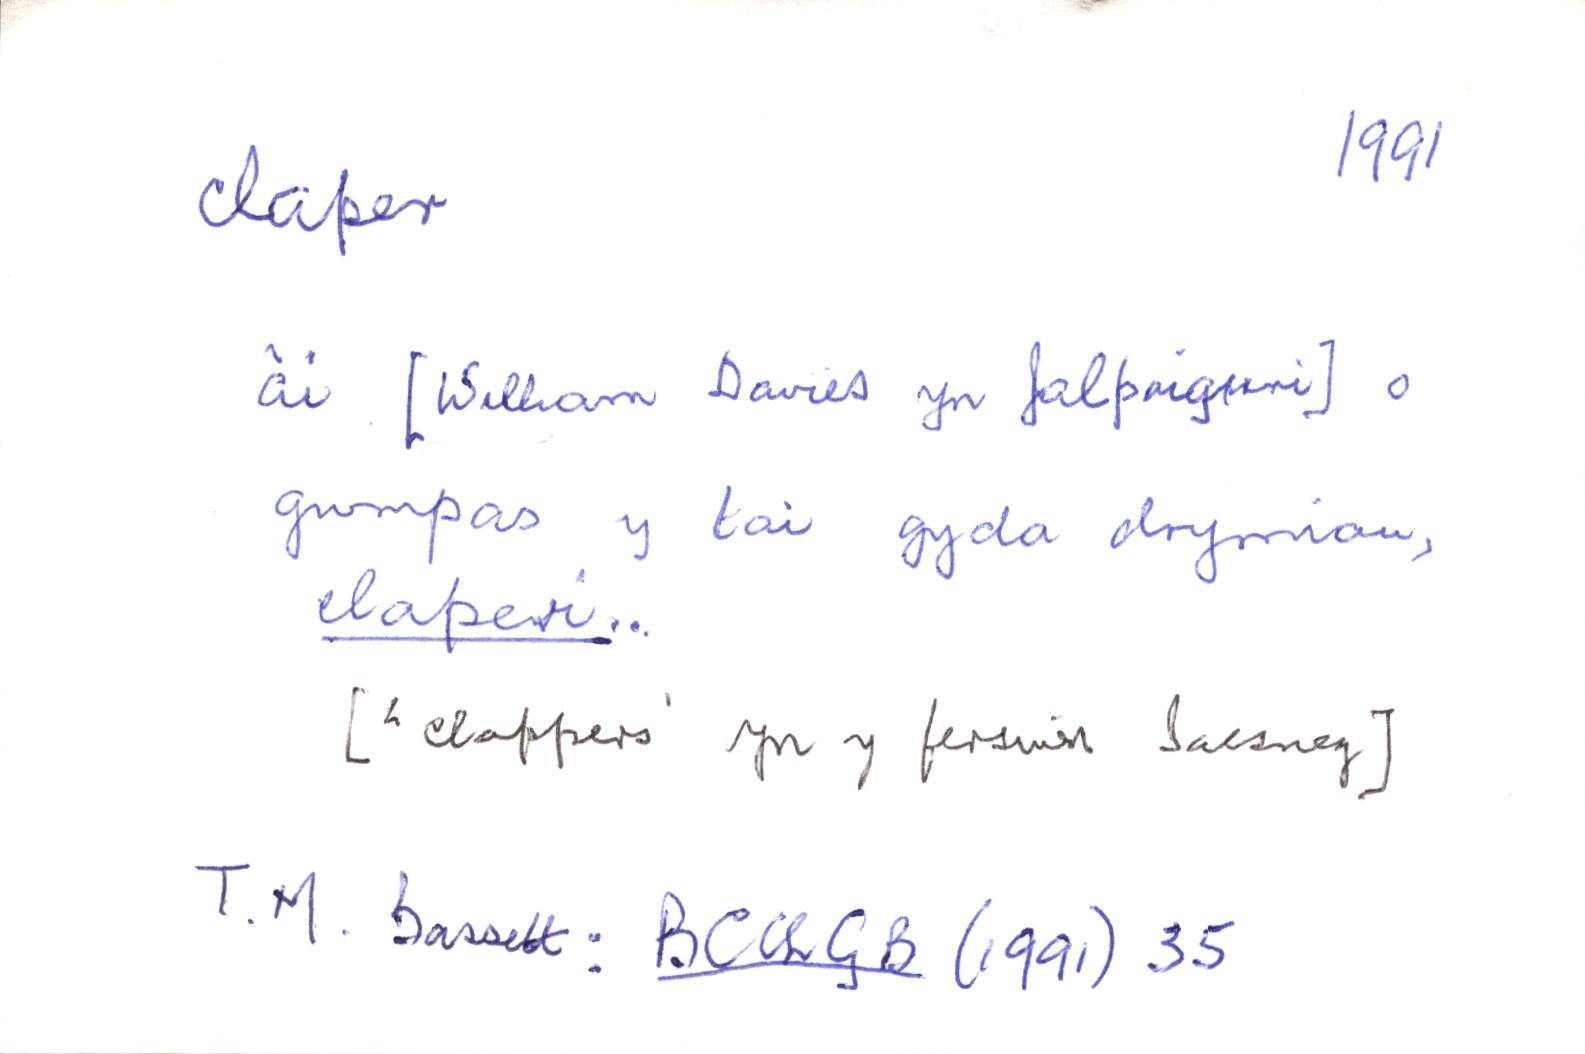 1991
claper
âi [William Davies yn Jalpaiguri] o
gwmpas y tai gyda drymiau,
claperi...
["clappers' yn y fersiwn Saesneg]
T.M. Bassett: (1991) 35